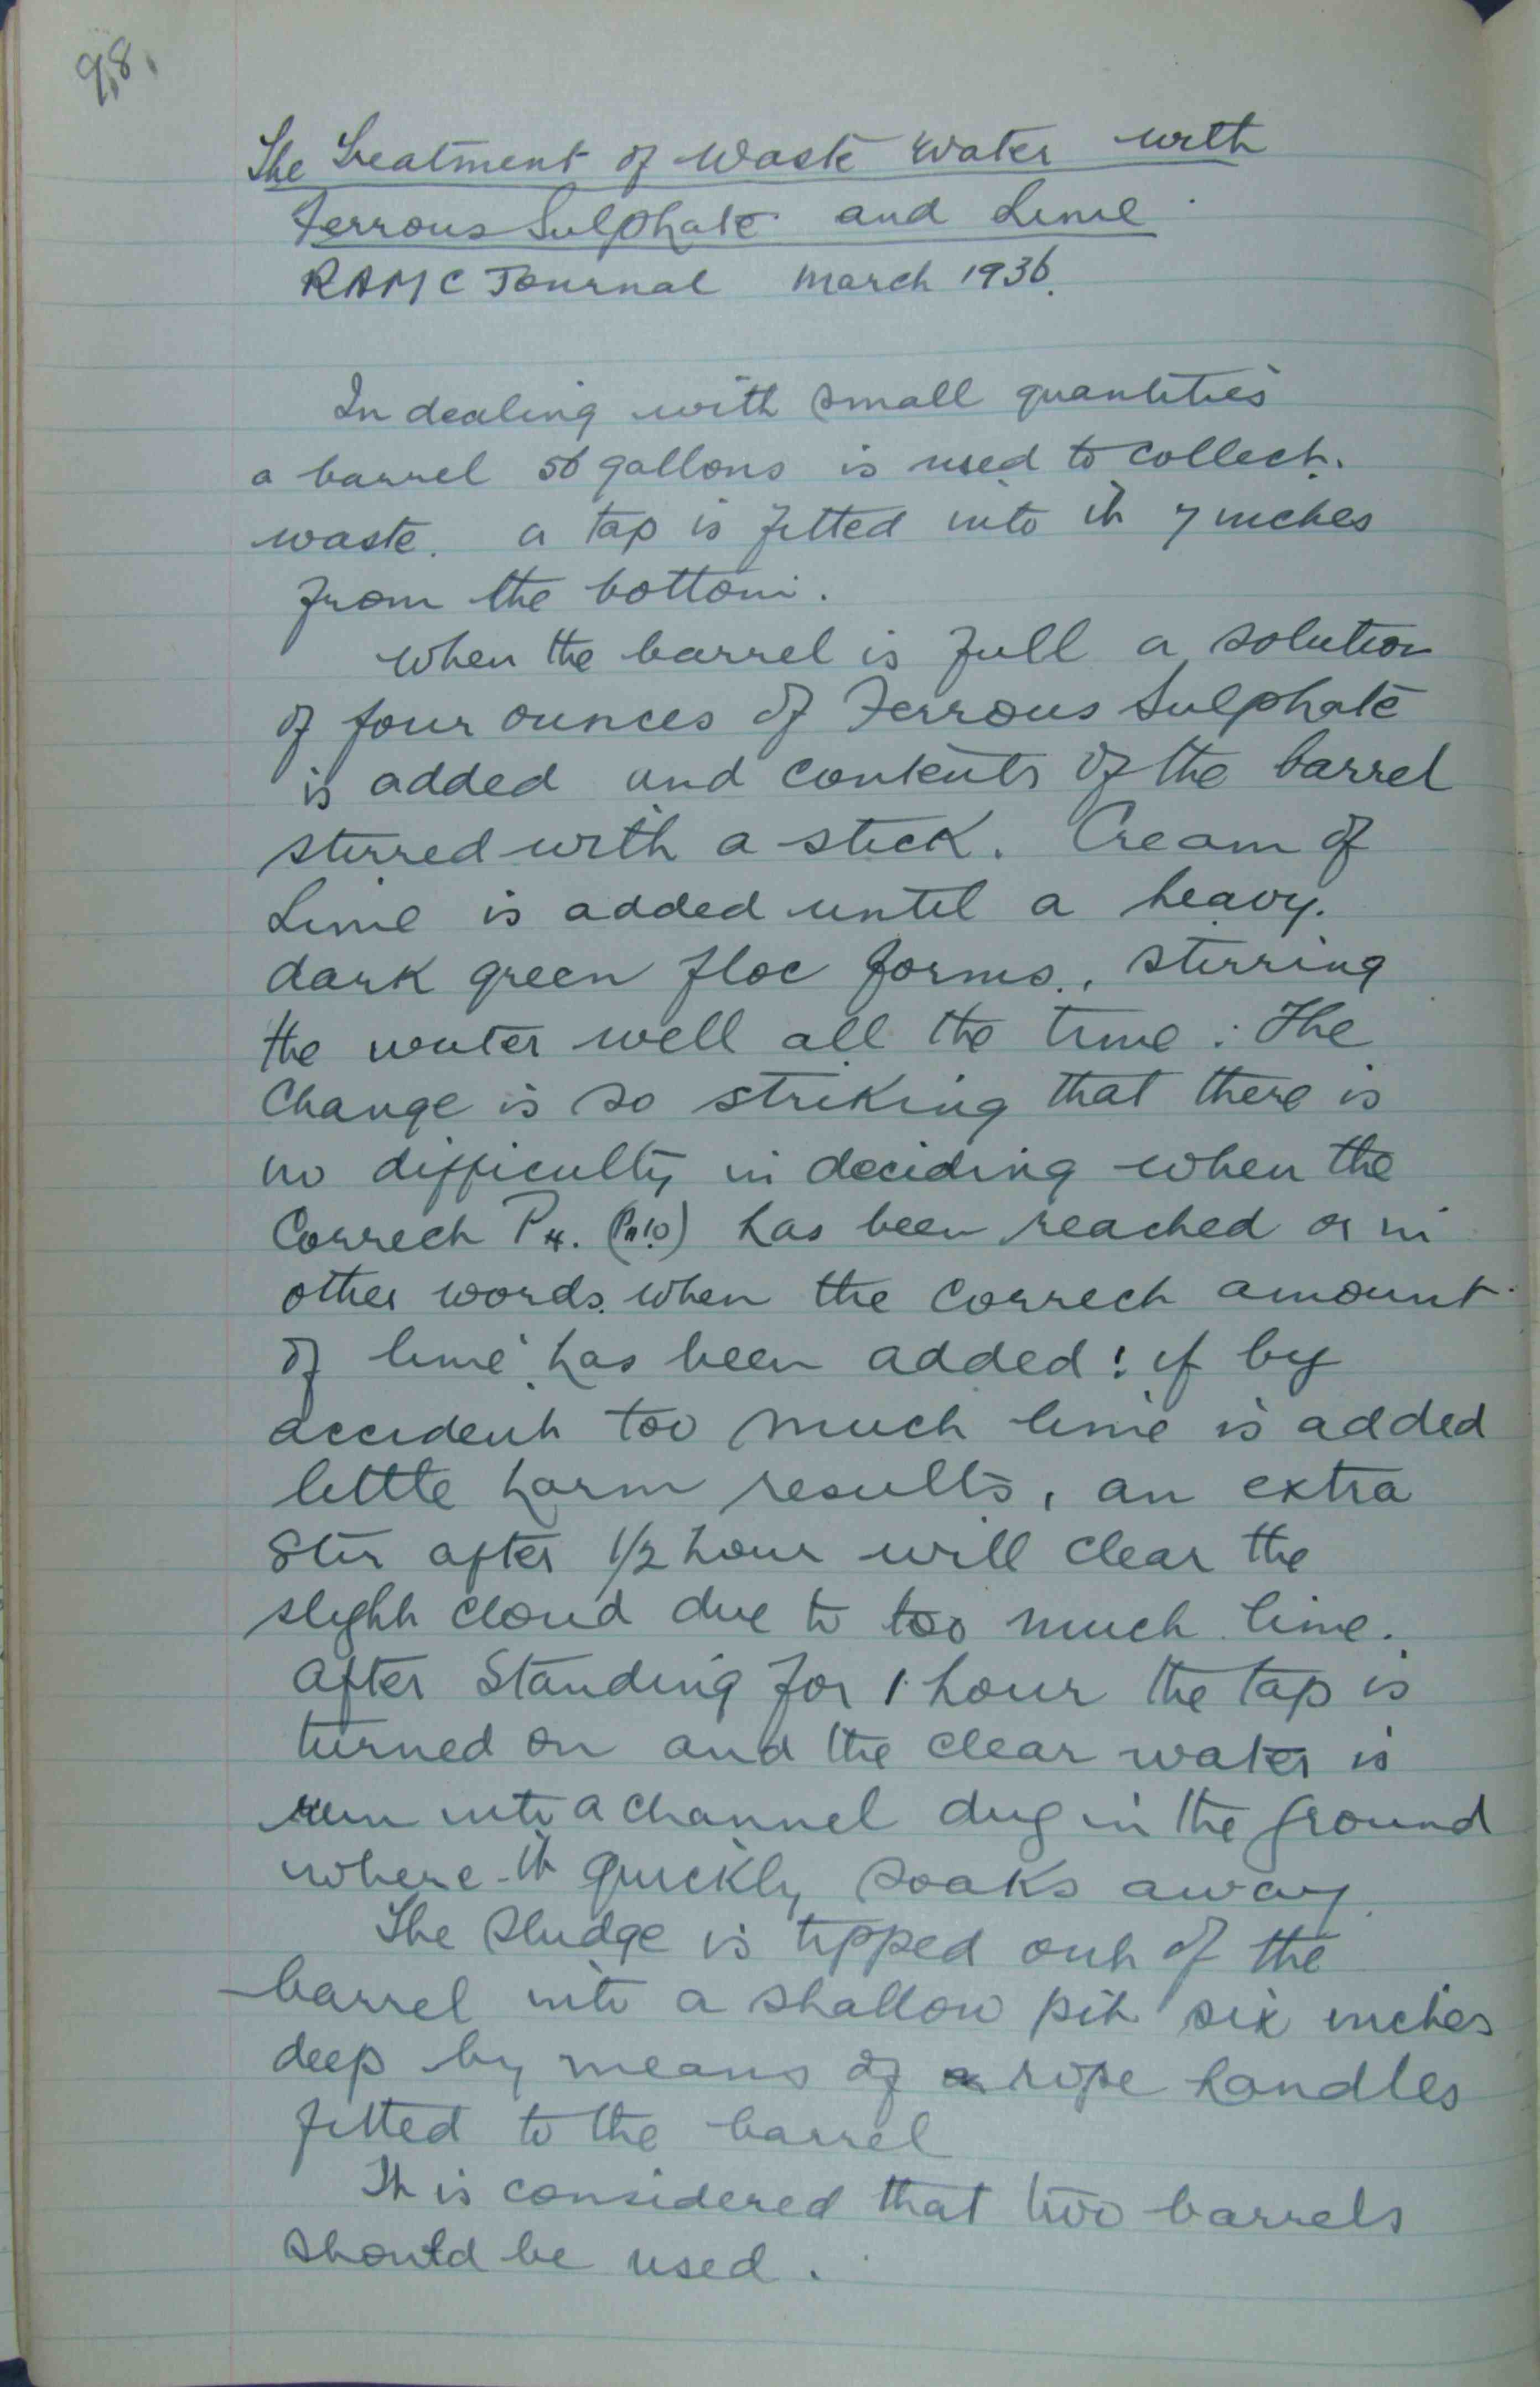 98.
The Treatment of Waste Water with
Ferrous Sulphate and Lime
RAMC Journal March 1936.
In dealing with small quantities
a barrel 50 gallons is used to collect.
waste. a tap is fitted into it 7 inches
from the bottom.
When the barrel is full a solution
of four ounces of Ferrous Sulphate
is added and contents of the barrel
stirred with a stick. Cream of
Lime is added until a heavy.
dark green floc forms., stirring
the water well all the time. The
change is so striking that there is
no difficulty in deciding when the
Correct PH. (PH10) has been reached or in
other words. when the correct amount
of lime has been added: if by
accident too much lime is added
little harm results, an extra
Stir after 1/2 hour will clear the
slight cloud due to too much lime.
After Standing for 1 hour the tap is
turned on and the clear water is
run into a channel dug in the ground
where it quickly soaks away.
The sludge is tipped out of the
barrel into a shallow pit six inches
deep by means of rope handles
fitted to the barrel
It is considered that two barrels
should be used.